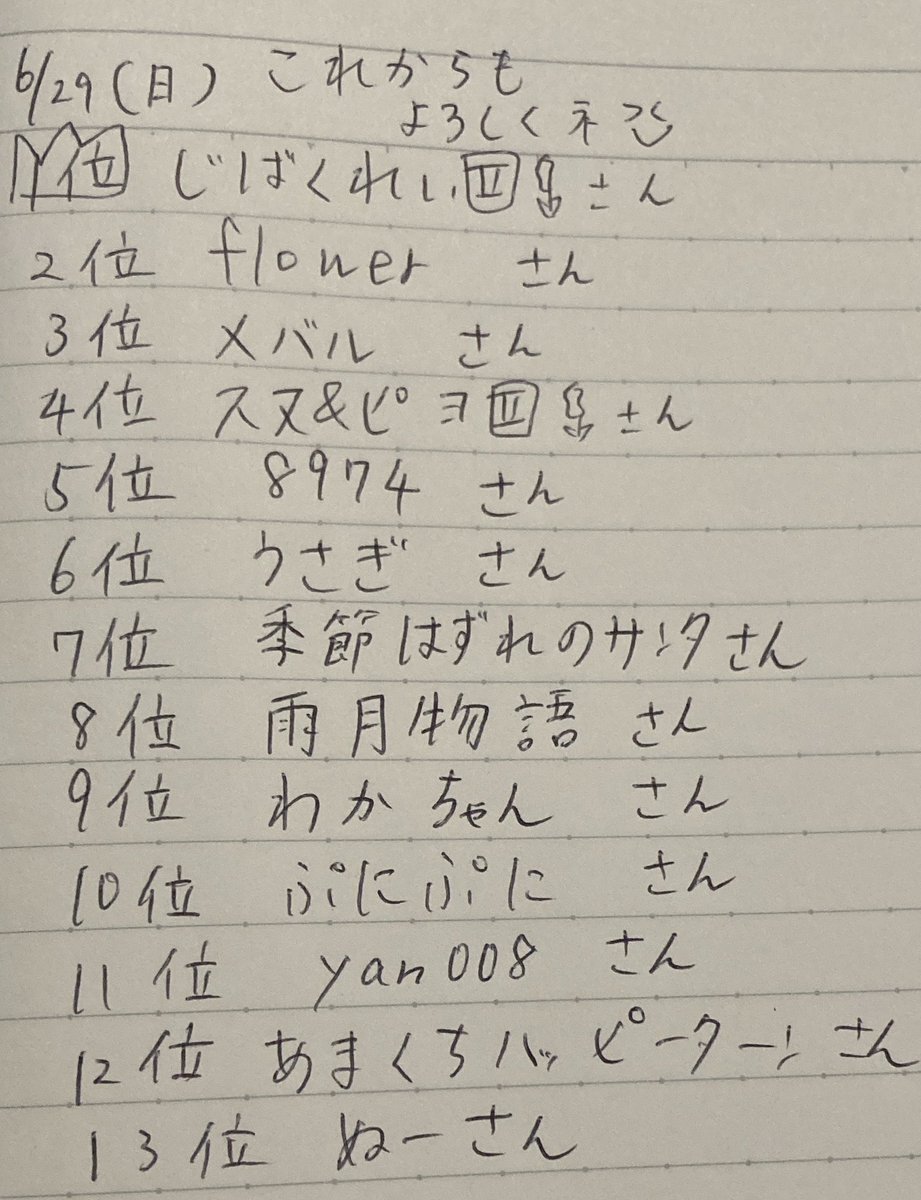 6/29(日) これからも
よろしくネ
1位 じばくれい皿島さん
2位 flower さん
3位 メバル さん
4位 スヌ&ピヨ皿島さん
5位 8974 さん
6位 うさぎ さん
7位 季節はずれのサンタさん
8位 雨月物語 さん
9位 わかちゃん さん
10位 ぷにぷに さん
11位 yan008 さん
12位 あまくちハッピーターンさん
13位 ぬーさん